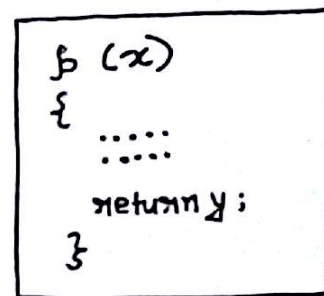 f (x)
{
.....
.....
return y;
}